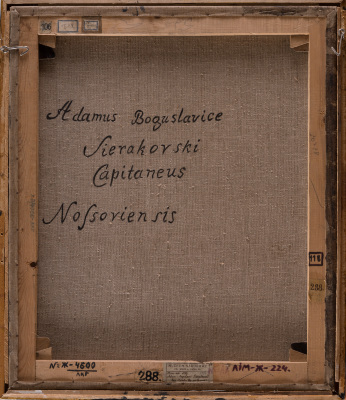 Adamus Boguslavice
Sierakovski
Capitaneus
Noſsoviensis
116
288
№ Ж-4600
288.
ЛІМ-Ж-224.